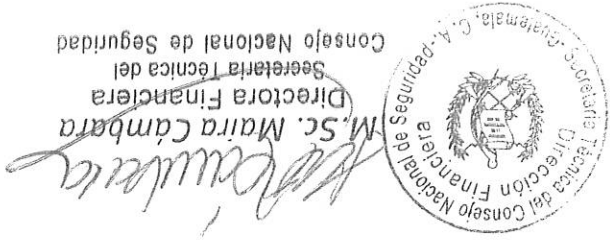 M.Sc. Maira Cámbara
Directora Financiera
Secretaría Técnica del
Consejo Nacional de Seguridad
Secretaría Técnica del Consejo Nacional de Seguridad - Guatemala, C. A.
Dirección Financiera